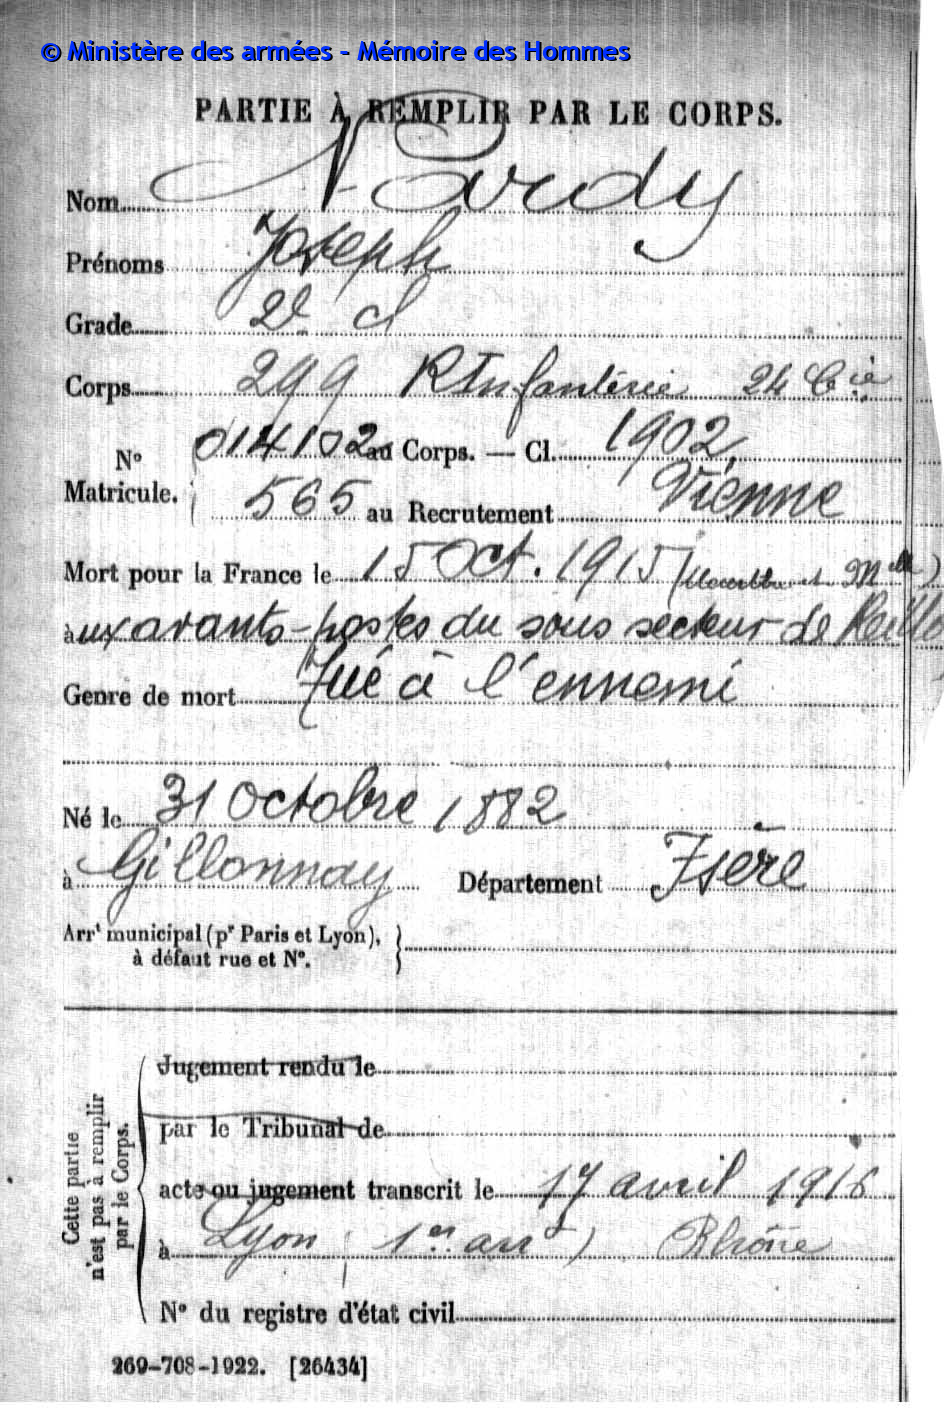 © Ministère des armées - Mémoire des Hommes
PARTIE À REMPLIR PAR LE CORPS.
Nom Nardy
Prénoms Joseph
Grade 2e cl
Corps 299 R Infanterie 24 Cie
N° 014102 au Corps. — Cl. 1902
Matricule. 565 au Recrutement Vienne
Mort pour la France le 15 Oct. 1915 (Meurthe et Mlle)
à ux avants-postes du sous secteur de
Genre de mort Tué à l'ennemi
Né le 31 Octobre 1882
à Gillonnay Département Isère
Arrt municipal (pr Paris et Lyon),
à défaut rue et N°.
Cette partie
n'est pas à remplir
par le Corps.
Jugement rendu le
par le Tribunal de
acte ou jugement transcrit le 17 avril 1916
à Lyon (1er arrt) Rhône
N° du registre d'état civil
269-708-1922. [26434]